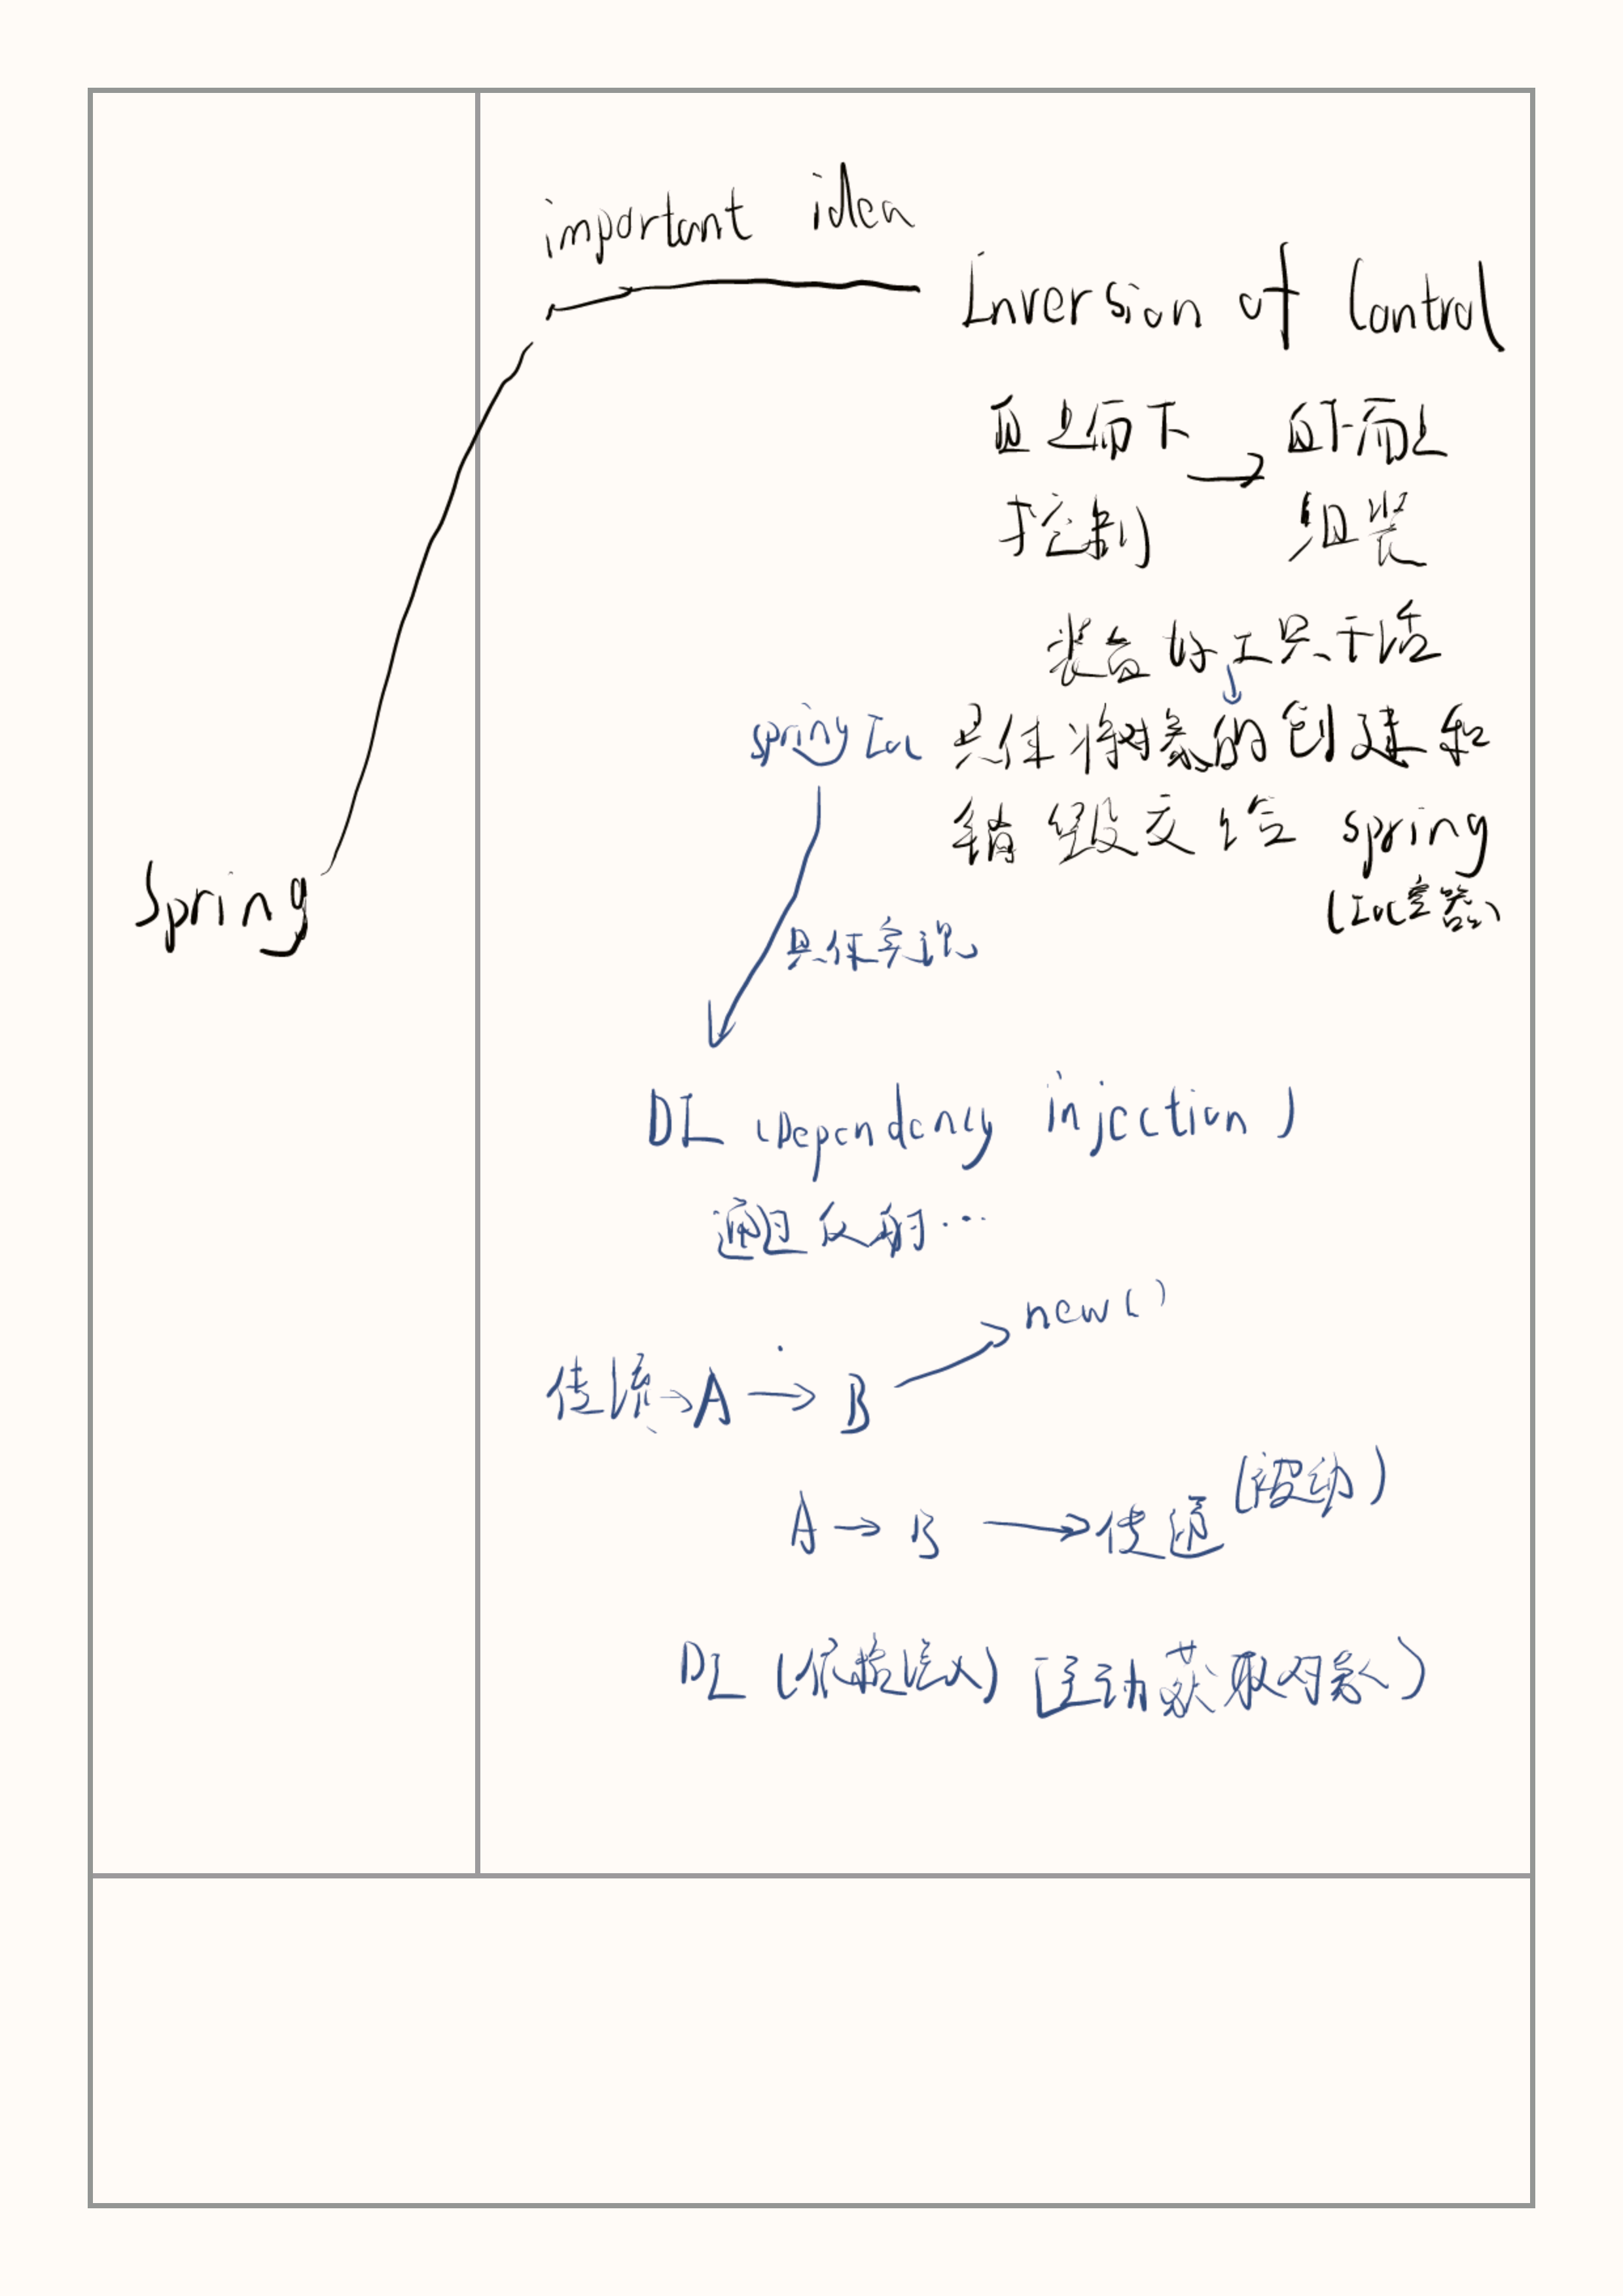 important idea
Inversion of Control
自上而下 → 自下而上
控制 组装
装备好工具干活
spring Ioc 具体将对象的创建和
销毁交给 spring
(Ioc容器)
Spring
具体实现
DI (Dependency injection)
通过反射...
new()
传统→A → B
(被动)
A → B → 传递
DI (依赖注入) [主动获取对象)